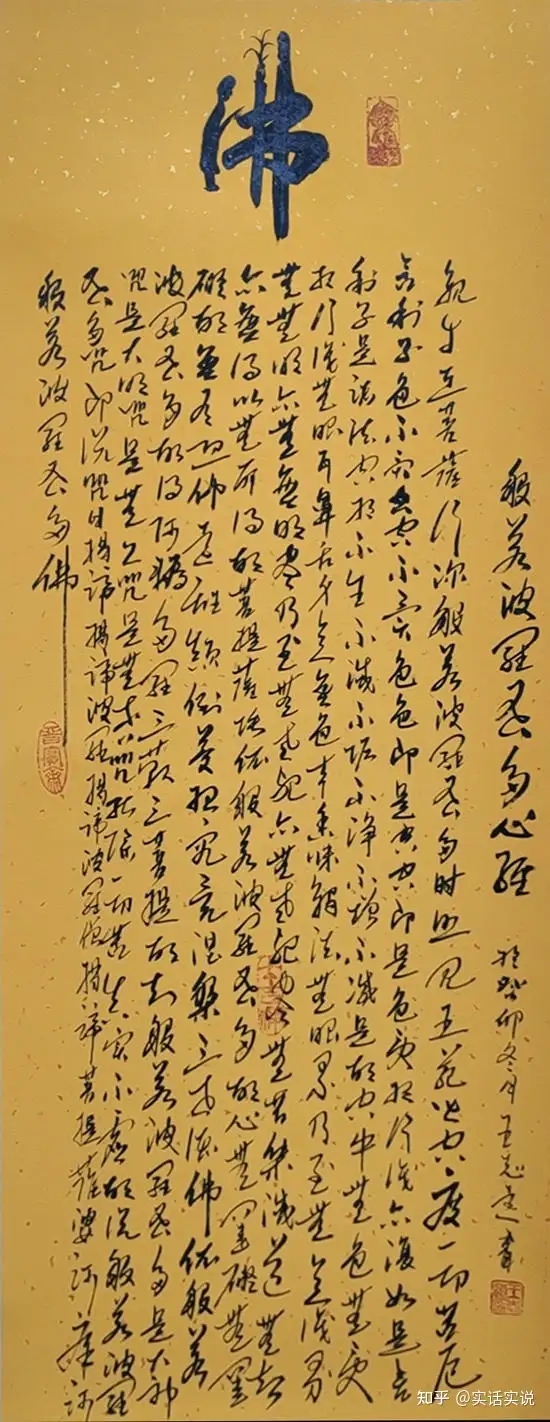 佛
般若波羅蜜多心經
觀自在菩薩行深般若波羅蜜多時照見五蘊皆空度一切苦厄
舍利子色不異空空不異色色即是空空即是色受想行識亦復如是舍
利子是諸法空相不生不滅不垢不淨不增不減是故空中無色無受
想行識無眼耳鼻舌身意無色聲香味觸法無眼界乃至無意識界
無無明亦無無明盡乃至無老死亦無老死盡無苦集滅道無智
亦無得以無所得故菩提薩埵依般若波羅蜜多故心無罣礙無罣
礙故無有恐怖遠離顛倒夢想究竟涅槃三世諸佛依般若
波羅蜜多故得阿耨多羅三藐三菩提故知般若波羅蜜多是大神
咒是大明咒是無上咒是無等等咒能除一切苦真實不虛故說般若波羅
蜜多咒即說咒曰揭諦揭諦波羅揭諦波羅僧揭諦菩提薩婆訶摩訶
般若波羅蜜多佛
癸卯冬月王志遠書
知乎 @实话实说